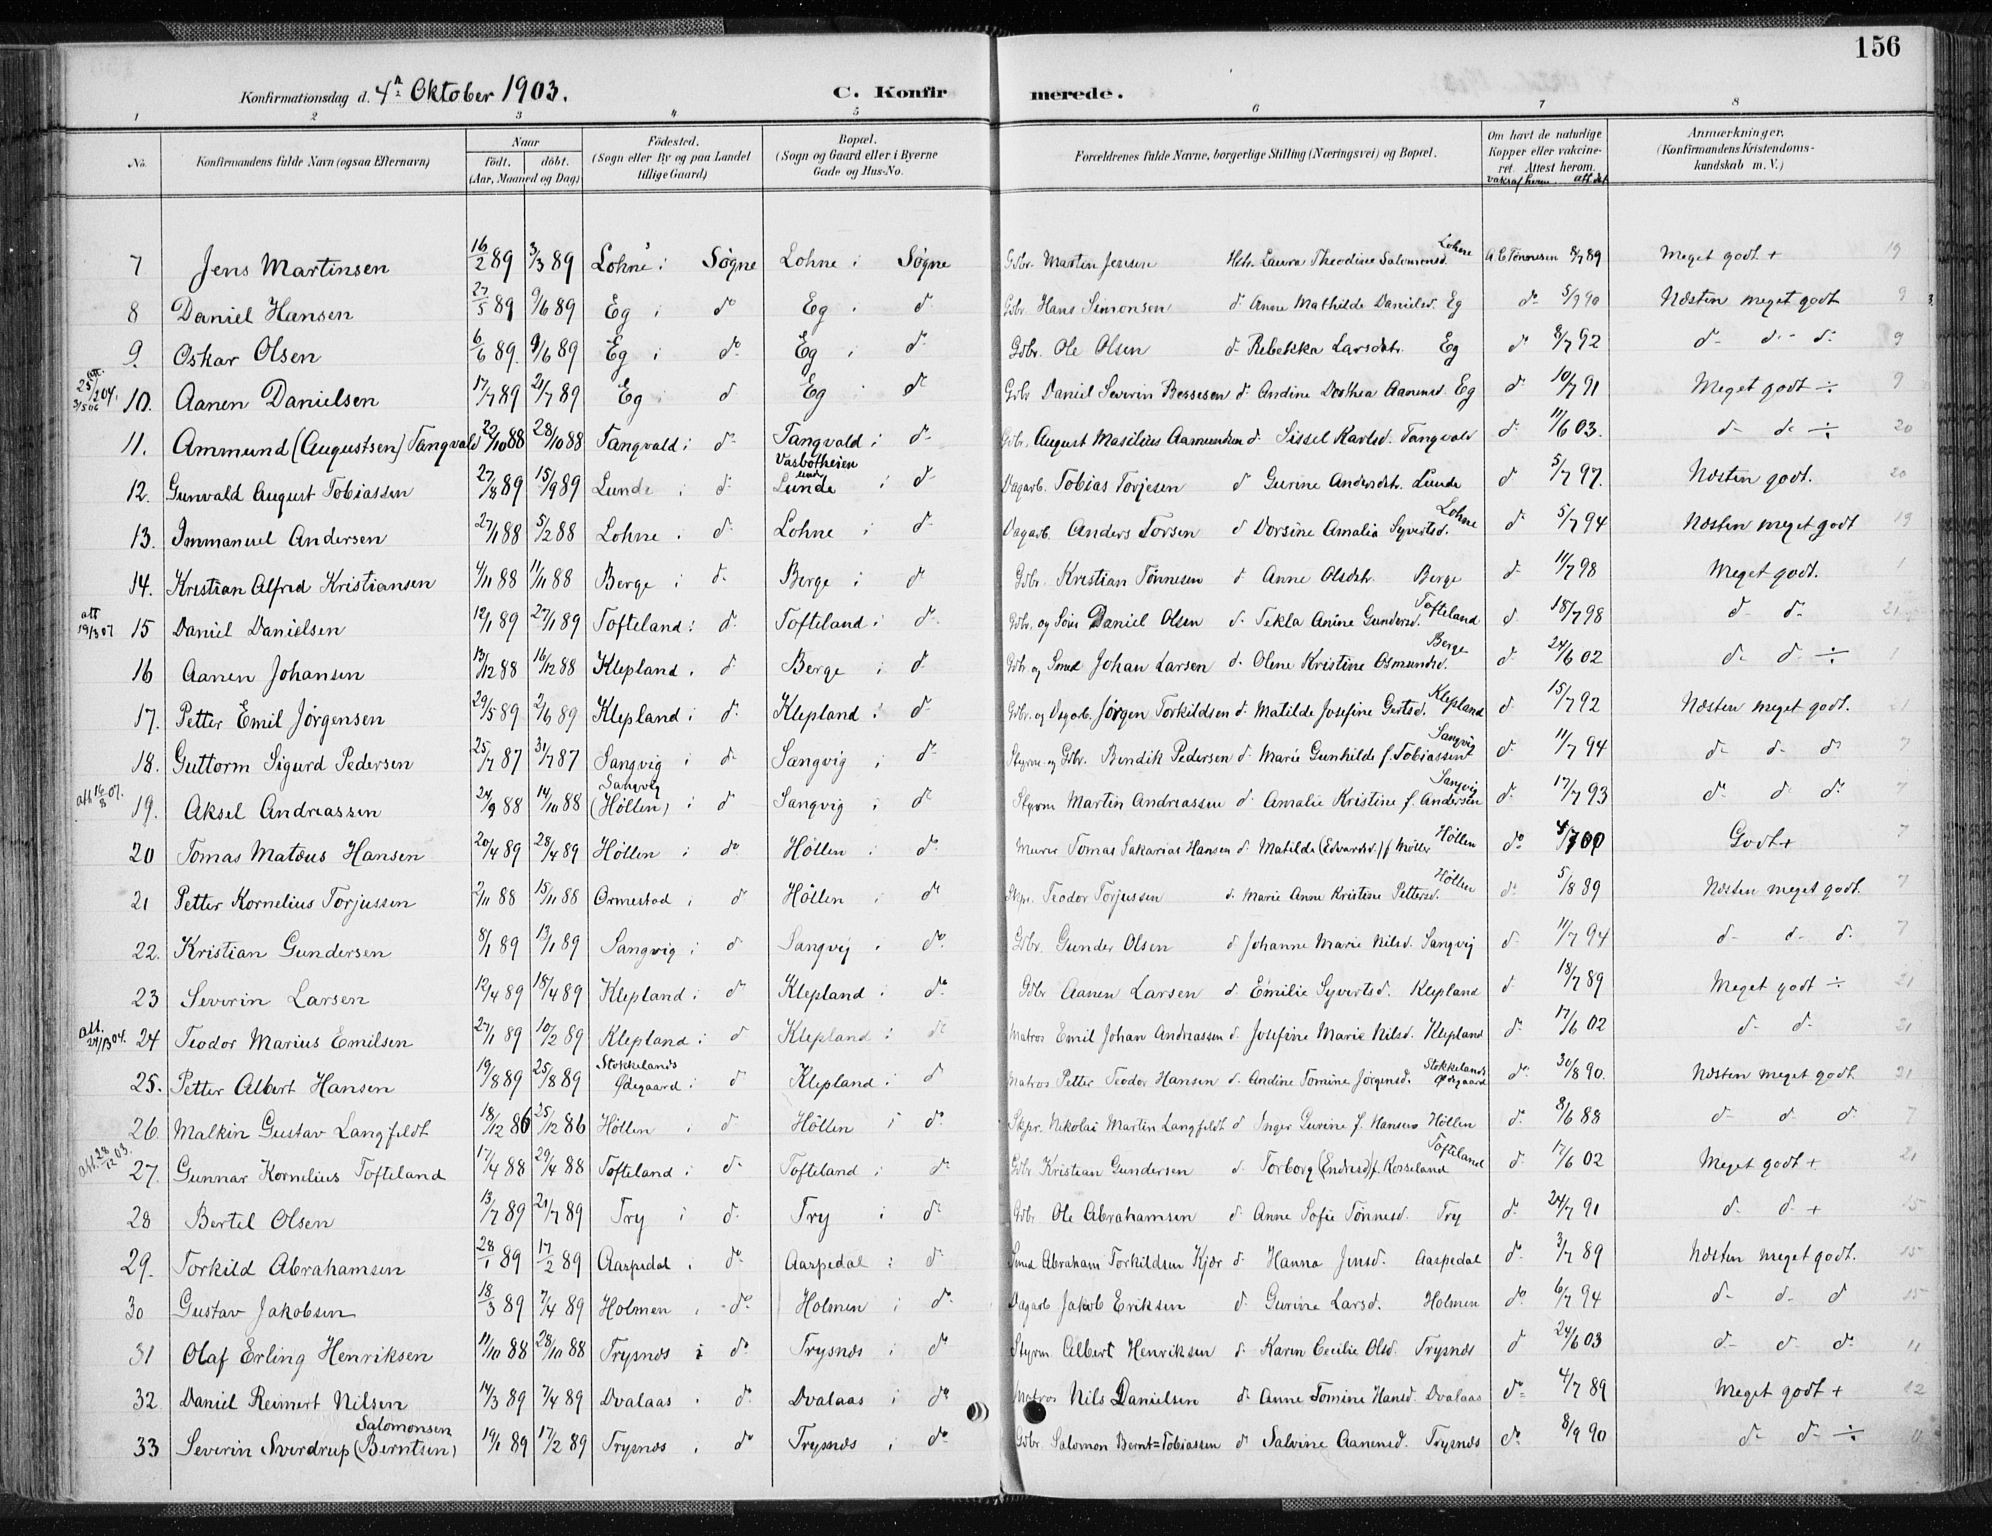 156
Konfirmationsdag d. 4de Oktober 1903. C. Konfirmerede.
1 2 3 4 5 6 7 8
No. Konfirmandens fulde Navn (ogsaa Efternavn) Naar født. døbt. (Aar, Maaned og Dag) Fødested. (Sogn eller By og paa Landet tillige Gaard) Bopæl. (Sogn og Gaard eller i Byerne Gade og Hus-No. Forældrenes fulde Navne, borgerlige Stilling (Næringsvei) og Bopæl. Om havt de naturlige Kopper eller vakcineret. Attest herom. Anmærkninger. (Konfirmandens Kristendomskundskab m. V.)
7 Jens Martinsen 16/2 89 3/3 89 Lohne i Søgne Lohne i Søgne Gdbr. Martin Jensen Hstr. Laura Theodine Salomonsd. Lohne A E Tønnesen 8/7 89 Meget godt + 19
8 Daniel Hansen 27/5 89 9/6 89 Eg i do Eg i do Gdbr. Hans Simonsen do Anne Mathilde Danielsd. Eg do 5/9 90 Næsten meget godt 9
9. Oskar Olsen 6/6 89. 9/6 89 Eg i do Eg i do Gdbr. Ole Olsen do Rebekka Larsdtr. Eg do 8/7 92 do do do 9
10. Aanen Danielsen 17/7 89 21/7 89 Eg i do Eg i do Gdbr Daniel Severin Bessesen do Andine Dorthea Aanensd. Eg do 10/7 91 Meget godt ÷ 9
11. Ammund (Augustsen) Tangvald 22/10 88 28/10 88 Tangvald i do Tangvald i do Gdbr. August Masilius Aamundsen do Sissel Karlsd. Tangvald do 11/6 03. do do ÷ 20
12. Gunvald August Tobiassen 27/8 89 15/9 89 Lunde i do Vasbotheien und Lunde i do Dagarb. Tobias Torjesen do Gurine Andersdtr. Lunde do 5/7 97. Næsten godt. 20
13. Immanuel Andersen 27/1 88 5/2 88 Lohne i do Lohne i do Dagarb. Anders Torsen do Dorsine Amalia Syvertsd. Lohne do 5/7 94 Næsten meget godt 19
14. Kristian Alfred Kristiansen 4/11 88 11/11 88 Berge i do Berge i do Gdbr. Kristian Tønnesen do Anne Olsdtr. Berge do 11/7 98 Meget godt. 1
att 19/3 07 15 Daniel Danielsen 12/1 89 27/1 89 Tofteland i do Tofteland i do Gdbr. og Daniel Olsen do Tekla Anine Gundersd. Tofteland do 18/7 98 do do 21
16 Aanen Johansen 13/12 88 16/12 88 Klepland i do Berge i do Gdbr og Smed Johan Larsen do Olene Kristine Osmundsd. Berge do 24/6 02 do do ÷ 1
17. Petter Emil Jørgensen 29/5 89 2/6 89 Klepland i do Klepland i do Gdbr. og Dagarb. Jørgen Torkildsen do Matilde Josefine Gertsd. Klepland do 15/7 92 Næsten meget godt. 21
18. Guttorm Sigurd Pedersen 25/7 87 31/7 87 Sangvig i do Sangvig i do Styrm. og Gdbr. Bendik Pedersen do Marie Gunhilde f. Tobiassen Sangvig do 11/7 94 do do do 7
19. Aksel Andreassen 24/9 88 14/10 88 Sangvig (Høllen) i do Sangvig i do Styrm Martin Andreassen do Amalie Kristine f. Andersen Sangvig do 17/7 93 do do do 7
20 Tomas Matæus Hansen 20/4 89 28/4 89 Høllen i do Høllen i do Murer Tomas Sakarias Hansen do Matilde (Edvardsd.) f Møller Høllen do Godt + 7
21 Petter Kornelius Torjussen 2/11 88 15/11 88 Ormestad i do Høllen i do Skpr. Teodor Torjussen do Marie Anne Kristine Pettersd. Høllen do 5/8 89 Næsten meget godt. 7
22. Kristian Gundersen 8/1 89 13/1 89 Sangvig i do Sangvig i do Gdbr. Gunder Olsen do Johanne Marie Nilsd. Sangvig do 11/7 94 do do do 7
23 Severin Larsen 12/4 89 18/4 89 Klepland i do Klepland i do Gdbr Aanen Larsen do Emilie Syvertsd. Klepland do 18/7 89 Meget godt ÷ 21
24 Teodor Marius Emilsen 27/1 89 10/2 89 Klepland i do Klepland i do Matros Emil Johan Andreassen do Josefine Marie Nilsd. Klepland do 17/6 02 do do 21
25. Petter Albert Hansen 19/8 89 25/8 89 Stokkelands Ødegaard i do Klepland i do Matros Petter Teodor Hansen do Andine Tomine Jørgensd. Stokkelands Ødegaard do 30/8 90. Næsten meget godt 21
26. Malkin Gustav Langfeldt 18/12 86 25/12 86 Høllen i do Høllen i do Skpr. Nikolai Martin Langfeldt do Inger Gurine f. Hansen Høllen do 8/6 88 do do do 7
att. 28/12 03. 27. Gunnar Kornelius Tofteland 17/4 88 29/4 88 Tofteland i do Tofteland i do Gdbr Kristian Gundersen do Torborg (Endresd) f. Rosseland Tofteland do 17/6 02 Meget godt + 21
28 Bertel Olsen 13/7 89 21/7 89 Try i do Try i do Gdbr Ole Abrahamsen do Anne Sofie Tønnesd. Try do 24/7 91 do do + 15
29. Torkild Abrahamsen 28/1 89 17/2 89 Aaspedal i do Aaspedal i do Smed Abraham Torkildsen Kjær do Hanna Jensd. Aaspedal do 3/7 89 Næsten meget godt. 15
30 Gustav Jakobsen 18/3 89 7/4 89 Holmen i do Holmen i do Dagarb Jakob Eriksen do Gurine Larsd. Holmen do 6/7 94 do do do 15
31 Olaf Erling Henriksen 11/10 88 28/10 88 Trysnes i do Trysnes i do Styrm Albert Henriksen do Karen Cecilie Olsd. Trysnes do 24/6 03 do do do 11
32 Daniel Reinert Nilsen 14/3 89 7/4 89 Dvalaas i do Dvalaas i do Matros Nils Danielsen do Anne Tomine Hansd. Dvalaas do 4/7 89 Meget godt + 12
33 Severin Sverdrup Salomonsen (Berntsen) 19/1 89 17/2 89 Trysnes i do Trysnes i do Gdbr. Salomon Bernt=Tobiassen do Salvine Aanensd. Trysnes do 8/9 90 do do ÷ 11